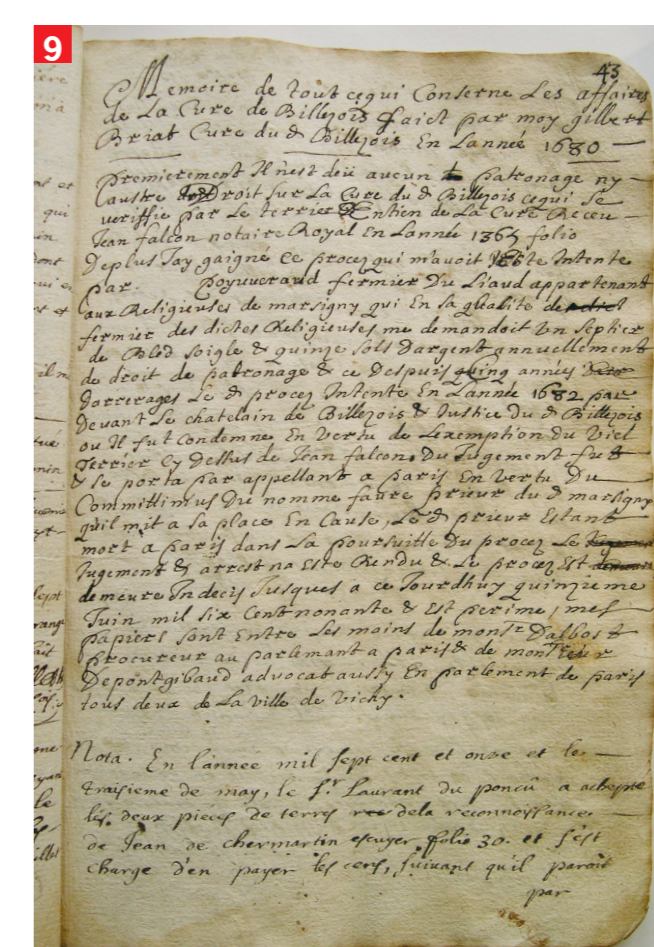 9
43
Memoire de tout cequi Conserne Les affaires
de La Cure de Billezois faict par moy gilbert
Briat Cure du d Billezois En Lannée 1680
premierement Il nest deü aucun patronage ny
autre Droit sur La Cure du d Billezois cequi se
veriffie par Le terrier Entien de La Cure Receu
Jean falcon notaire Royal En Lannée 1365 folio
Deplus Jay gaigné Ce procez qui m'avoit Esté Intente
par. fermier Du Liaud appartenant
aux Religieuses de marsigny qui En sa qualite
fermier des dictes Religieuses me demandoit Un septier
de Bled soigle & quinze sols Dargent annuellement
de droit de patronage & ce Despuis quinq années
Darrerages Le d procez Intente En Lannée 1682 par
Devant Le chatelain de Billezois & Justice du d Billezois
ou Il fut Condemne En vertu de Lexemption du Viel
Terrier Cy Dessus de Jean falcon, Du Jugement
& se porta par appellant a paris En vertu Du
Committimus Du nomme faure prieur du d marsigny
quil mit a sa place En Cause, Le d prieur Estant
mort a paris dans La poursuitte Du procez Le
Jugement & arrest na Este Rendu & Le procez Est
demeure Indecis Jusques a ce Jourdhuy quinzieme
Juin mil six Cent nonante & Est perime, mes
papiers sont Entre Les mains de monsr Dalbost
procureur au parlemant a paris & de monsieur
Depontgibaud advocat aussy En parlement de paris
tous deux de La ville de Vichy.
Nota. En l'année mil sept cent et onze et le
traisieme de may, le sr Laurant du ponçû a achepté
les deux pieces de terres dela reconnoissance
de Jean de chermartin escuyer folio 30. et s'est
charge d'en payer les cens, suivant qu'il paroit
par